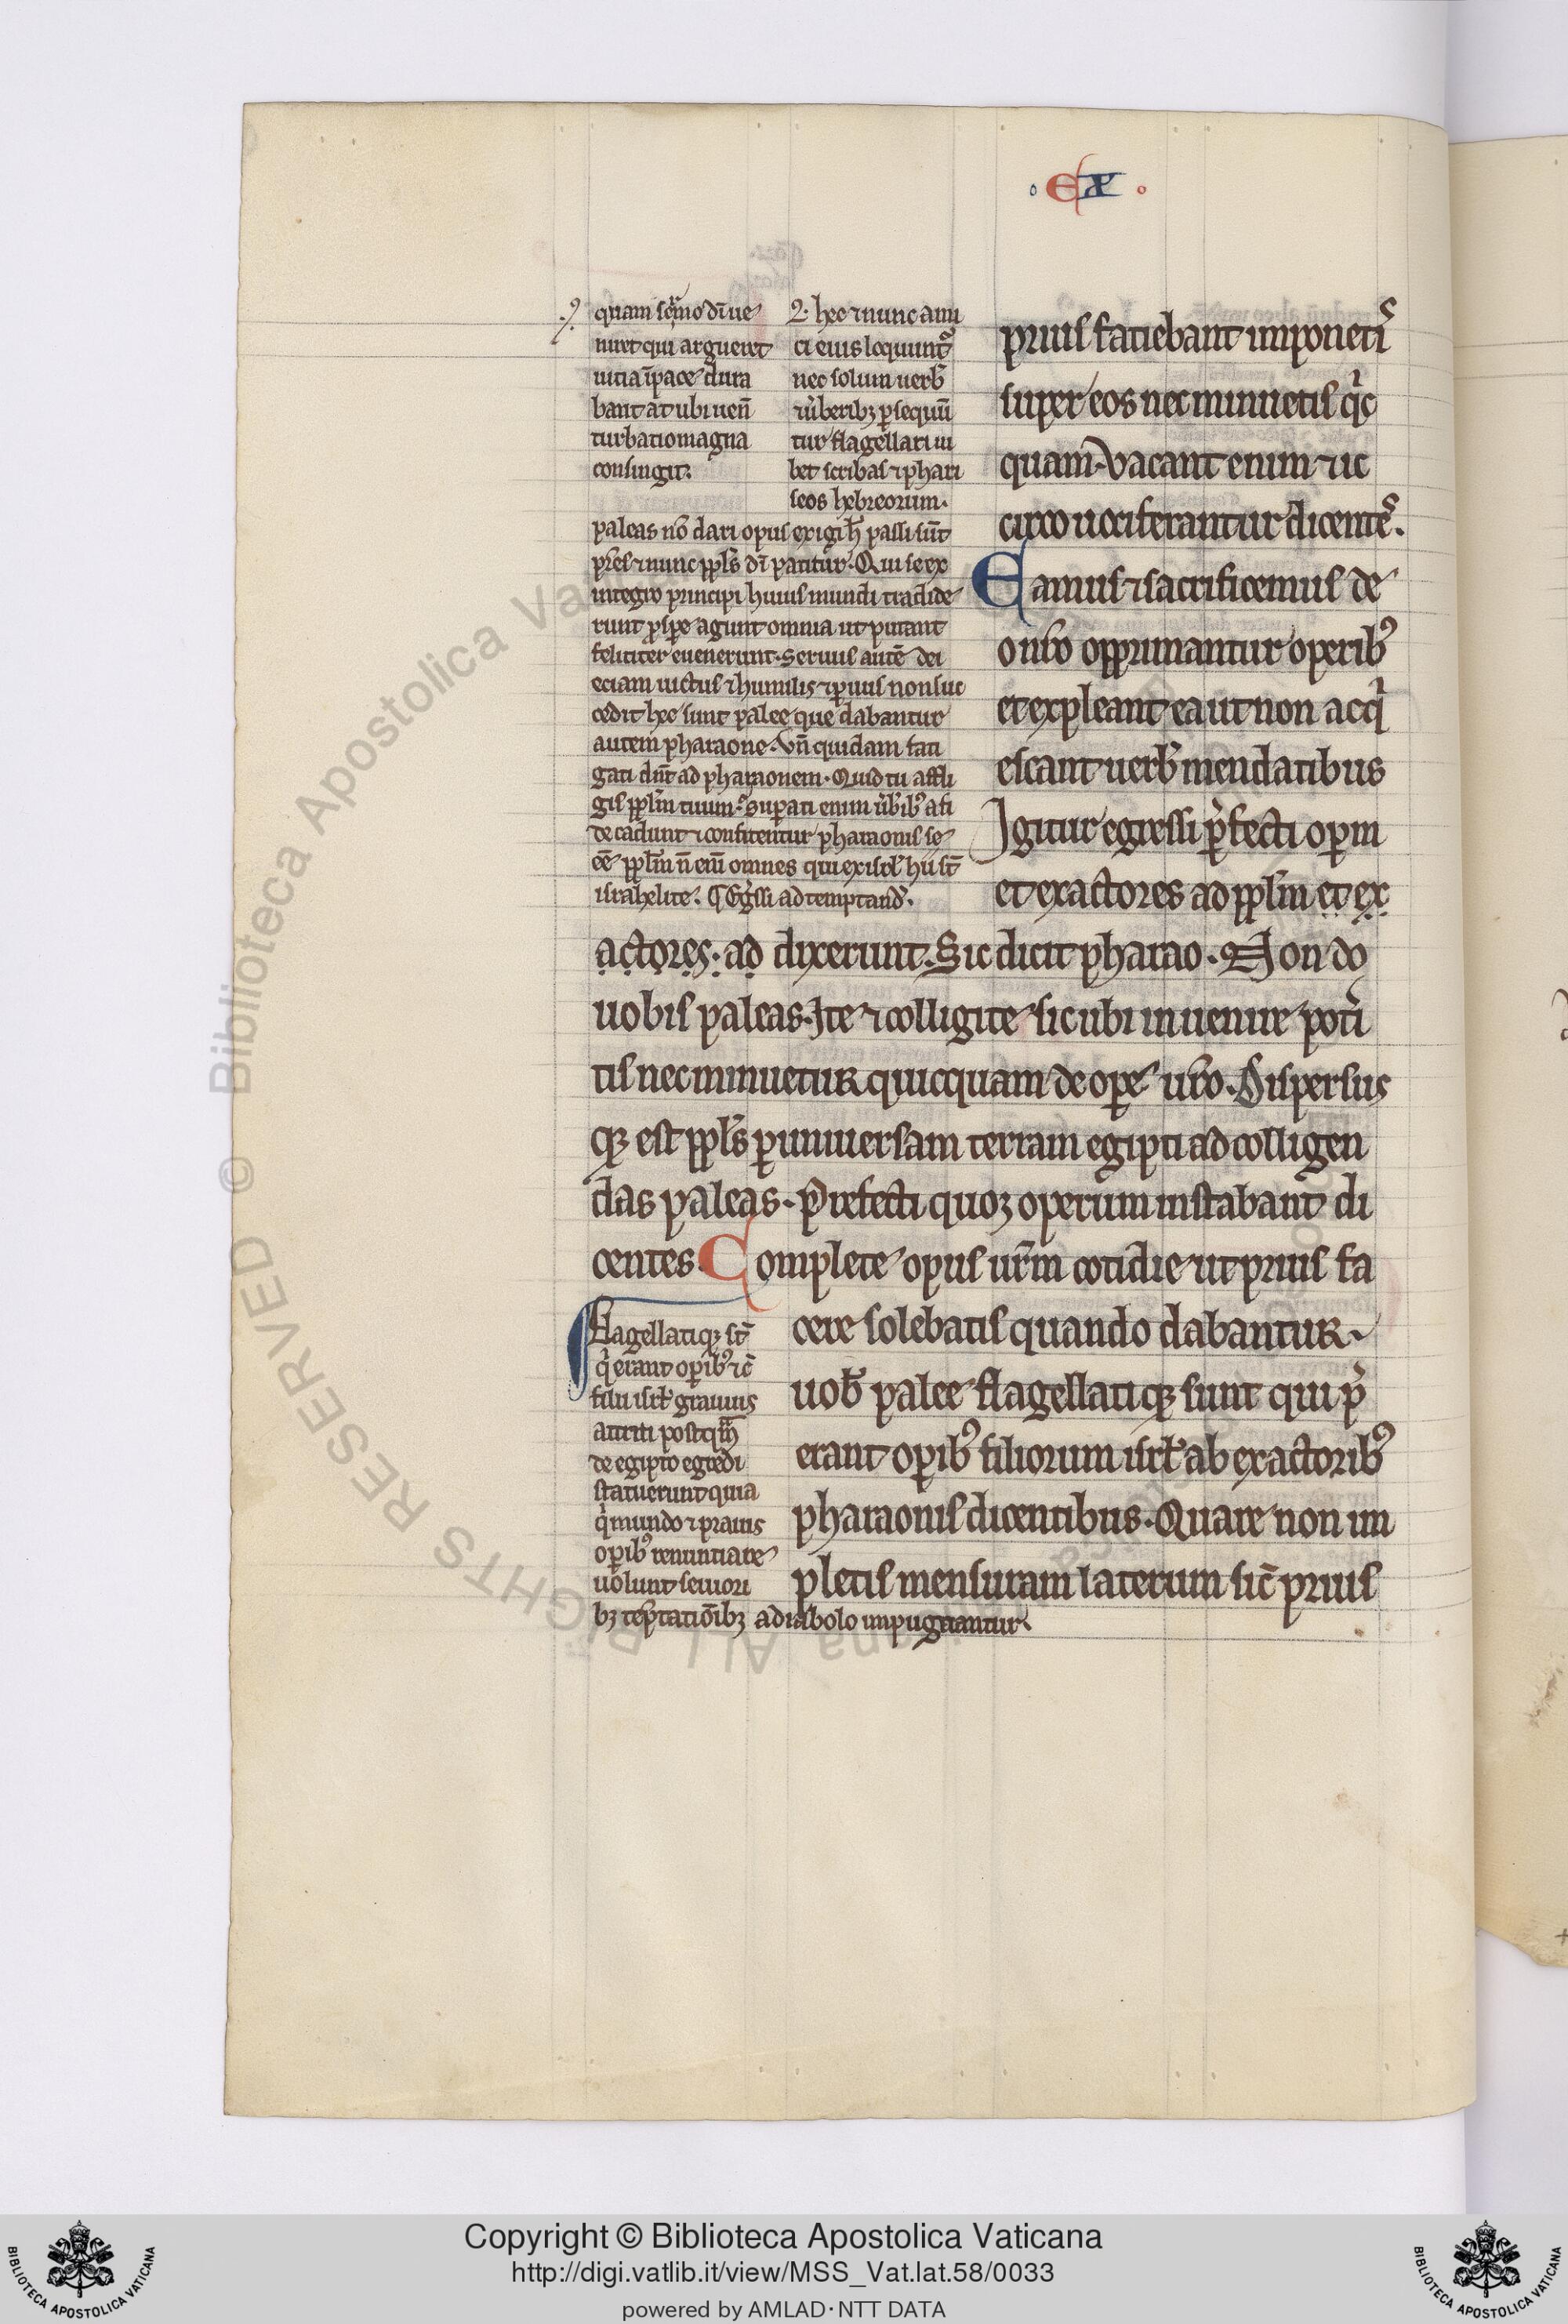 EX
quam sermo dī ue
niret qui argueret
uitia ī pace dura
bant at ubi uen̄
turbatio magna
consurgit.
2. hec ⁊ nunc ami
ci eius locunt᷑
nec solum uerb̄
⁊ ūberibꝫ ꝑsequū
tur flagellari iu
bet scribas ⁊ phari
seos hebreorum.
paleas nō dari opus exigi h̄ passi sūt
pr̄es ⁊ nunc ppl̄s dī patitur. Qui se ex
integro principi huius mundi tradide
runt ꝓspe agunt omnia ut putant
feliciter euenerunt. Seruus autē dei
eciam uictus ⁊ humilis ⁊ ꝑuus non suc
cedit hec sunt palee que dabantur
autem pharaone. Vn̄ quidam fati
gati dn̄t ad pharaonem. Quid tu affli
gis ppl̄m tuum. Supati enim ūbibꝰ a fi
de cadunt ⁊ confitentur pharaonis se
eē ppl̄m n̄ eni omnes qui ex isrl̄ hii st̄
israhelite. ¶ Egssi ad temptand.
prius faciebant imponetis
super eos nec minuetis qͥc
quam. Vacant enim ⁊ ic
circo uociferantur dicentes.
Eamus ⁊ sacrificemus de
o nr̄o opprimantur operibꝰ
et expleant ea ut non acqͥ
escant uerb̄ mendacibus
Igitur egressi p̄fecti opm
et exactores ad ppl̄m et ex
actores. ad dixerunt. Sic dicit pharao. Non do
uobis paleas. Ite ⁊ colligite sicubi inuenire poti
tis nec minuetur quicquam de ope ur̄o. Dispersus
qꝫ est ppl̄s ꝑ uniuersam terram egipti ad colligen
das paleas. Prefecti quoqꝫ operum instabant di
centes. Complete opus ur̄m cotidie ut prius fa
cere solebatis quando dabantur.
uob̄ palee flagellati qꝫ sunt qui p̄
erant opibꝰ filiorum isrl̄ ab exactoribꝰ
pharaonis dicentibus. Quare non im
pletis mensuram laterum sic̄ prius
Flagellati qꝫ st̄
qͥ erant opibꝰ ⁊c̄
filii isrl̄ grauius
attriti postqm̄
de egipto egredi
statuerunt quia
qͥ mundo ⁊ prauis
opibꝰ renuntiare
uolunt seuiori
bꝫ tēptatiōibꝫ a diabolo impugnantur.
Copyright © Biblioteca Apostolica Vaticana
http://digi.vatlib.it/view/MSS_Vat.lat.58/0033
powered by AMLAD·NTT DATA
BIBLIOTECA APOSTOLICA VATICANA
BIBLIOTECA APOSTOLICA VATICANA
© Biblioteca Apostolica Vaticana ALL RIGHTS RESERVED